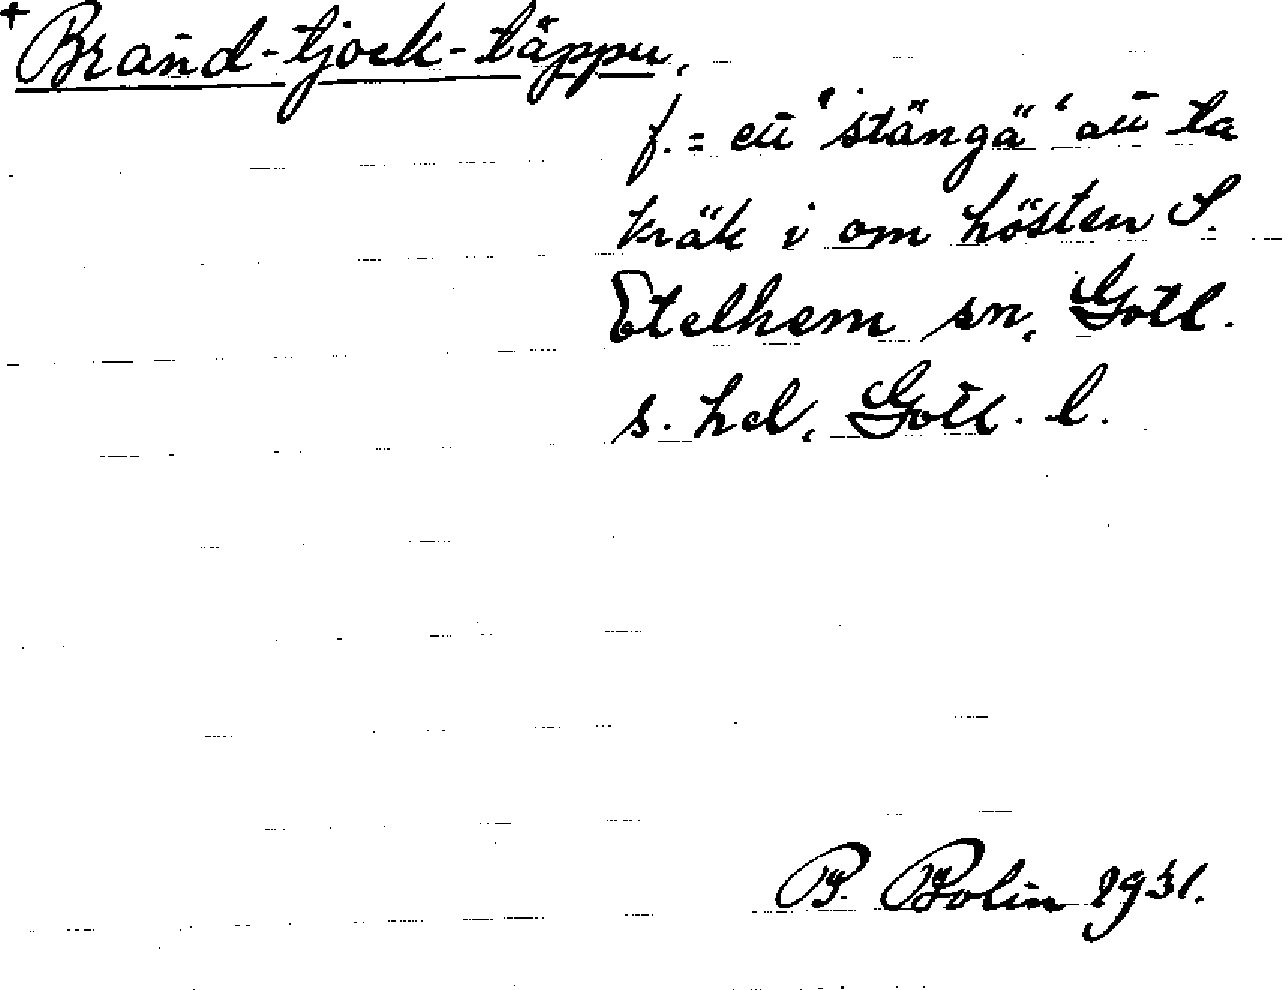 + Brand-tjock-täppu,
f. = ett "stängä" att ta
kräk i om hösten S.
Etelhem sn, Gotl.
s. hd, Gotl. l.
P. Bolin 1931.